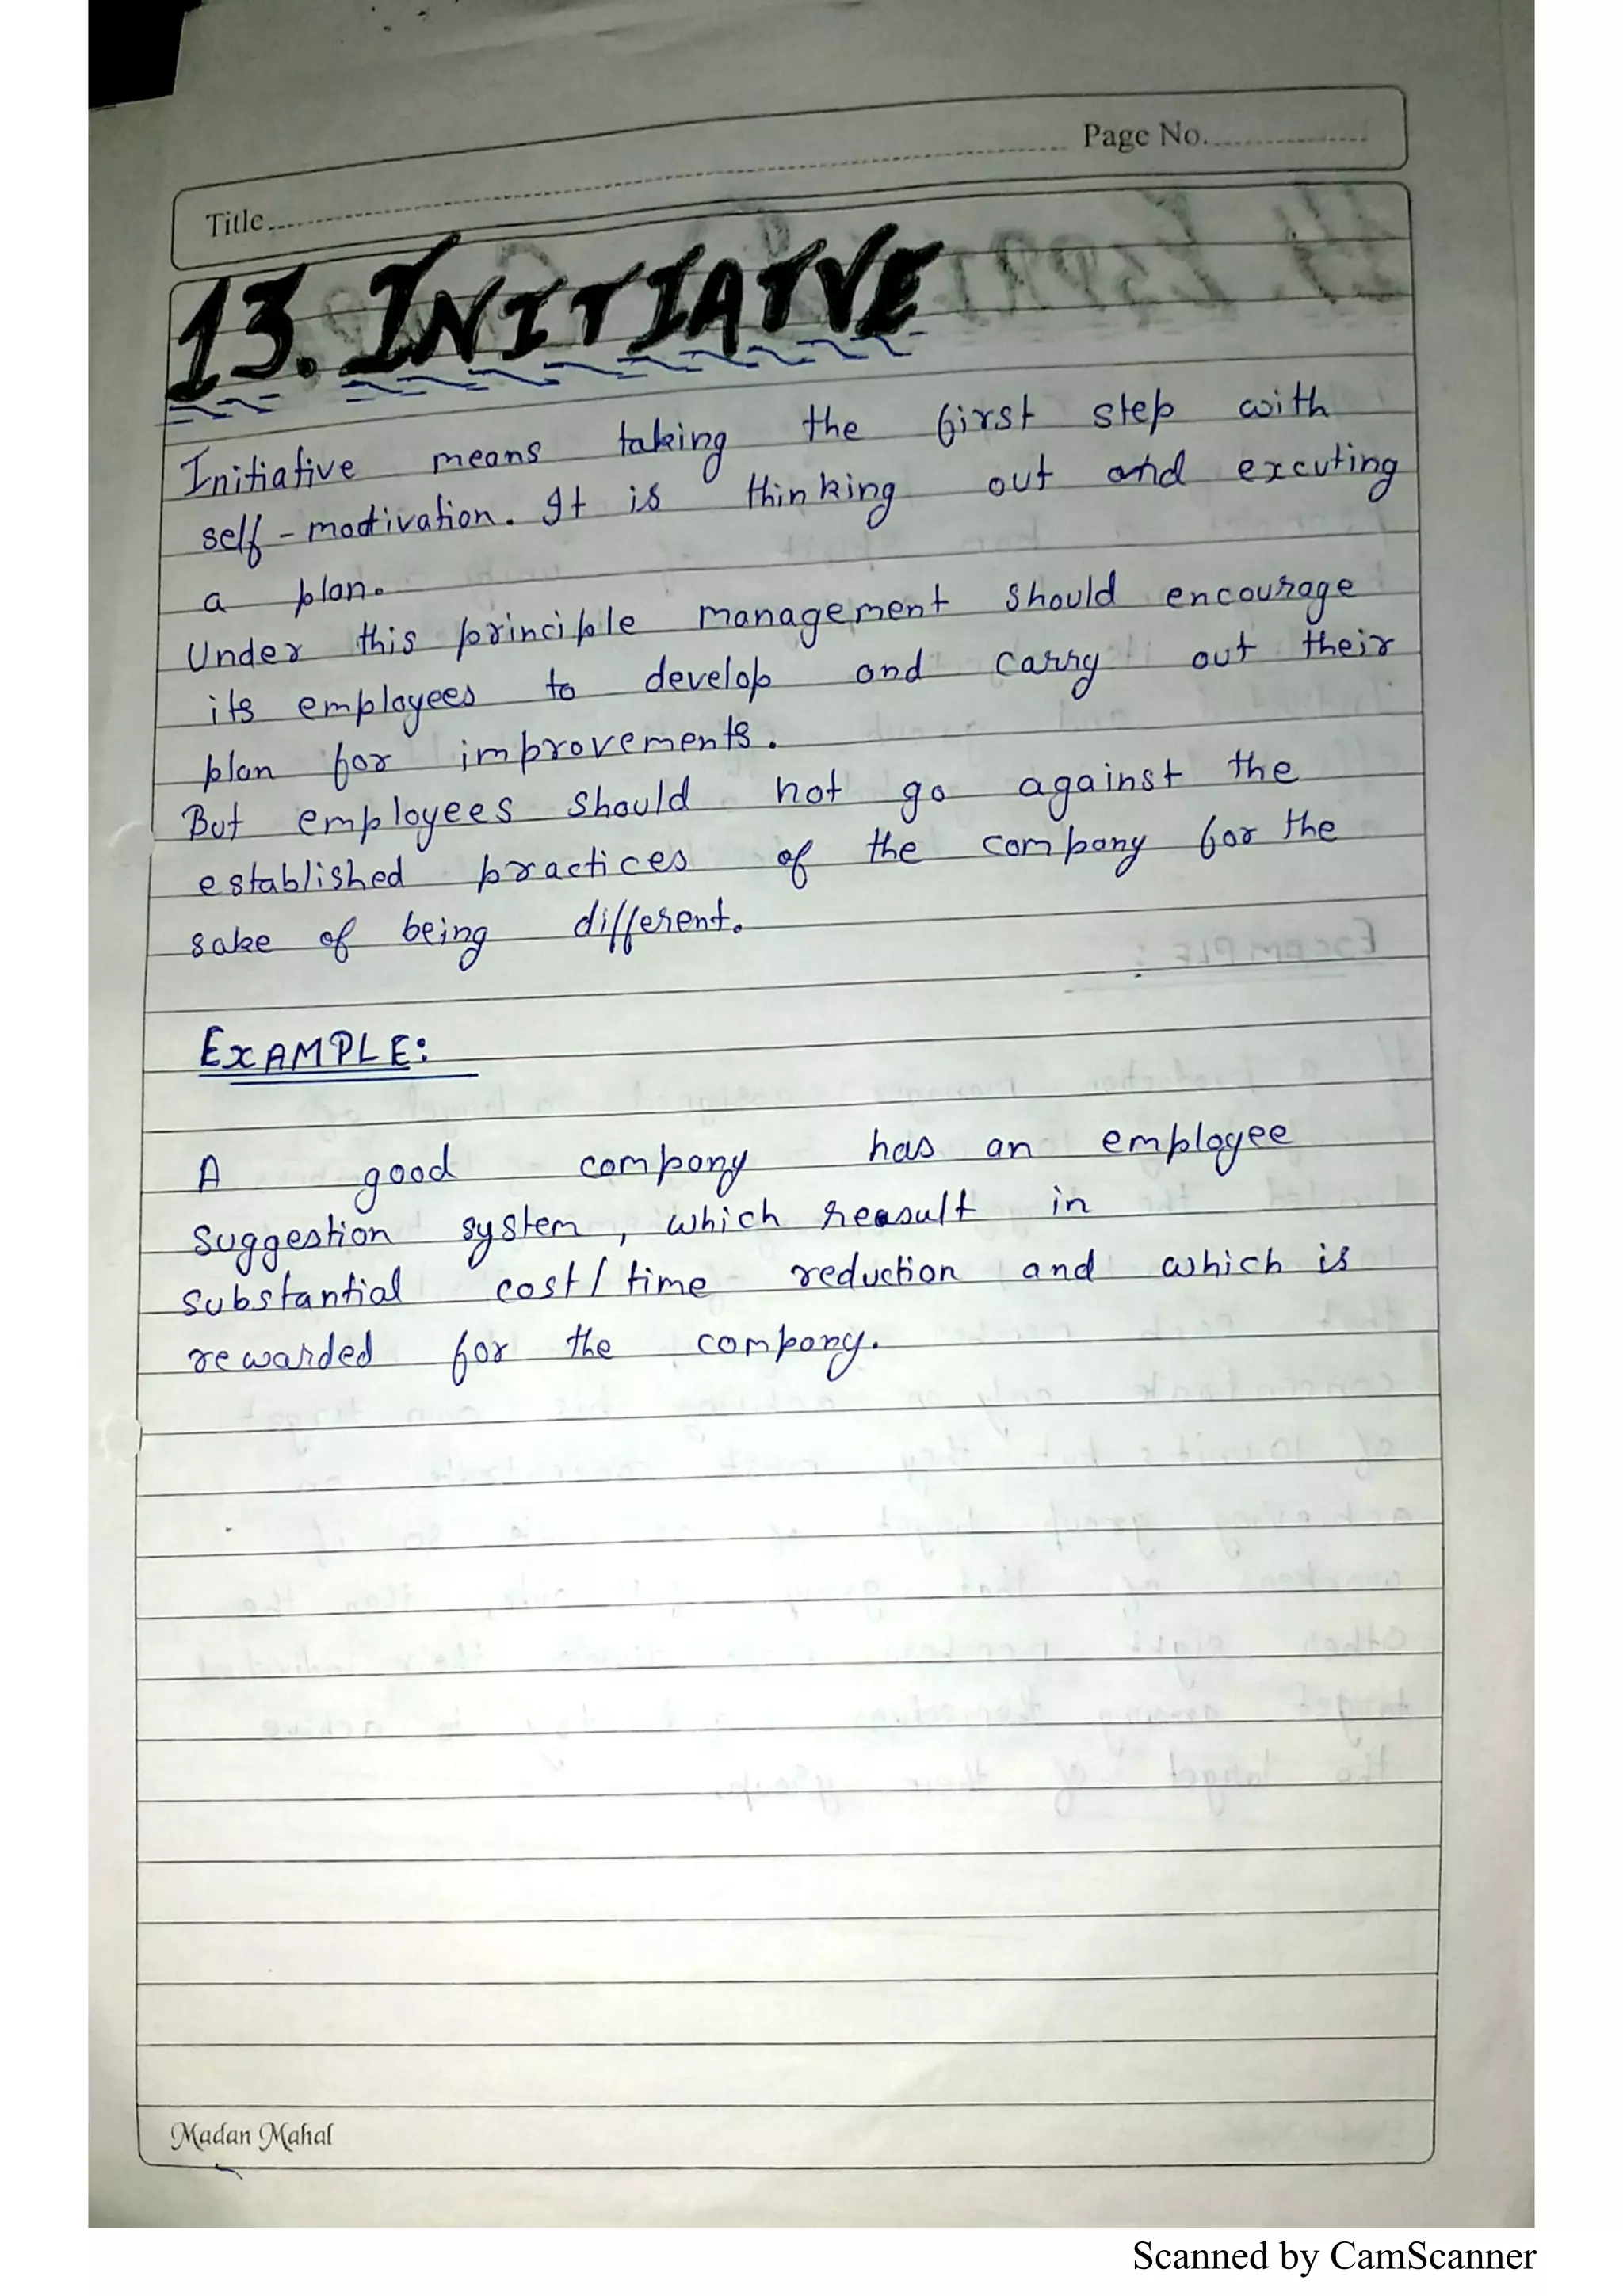 Page No.
Title
13. INITIATVE
Initiative means taking the first step with
self-motivation. It is thinking out and excuting
a plan.
Under this principle management should encourage
its employees to develop and carry out their
plan for improvements.
But employees should not go against the
established practices of the company for the
sake of being different.
EXAMPLE:
A good company has an employee
suggestion system, which reasult in
substantial cost/time reduction and which is
rewarded for the company.
Madan Mahal
Scanned by CamScanner